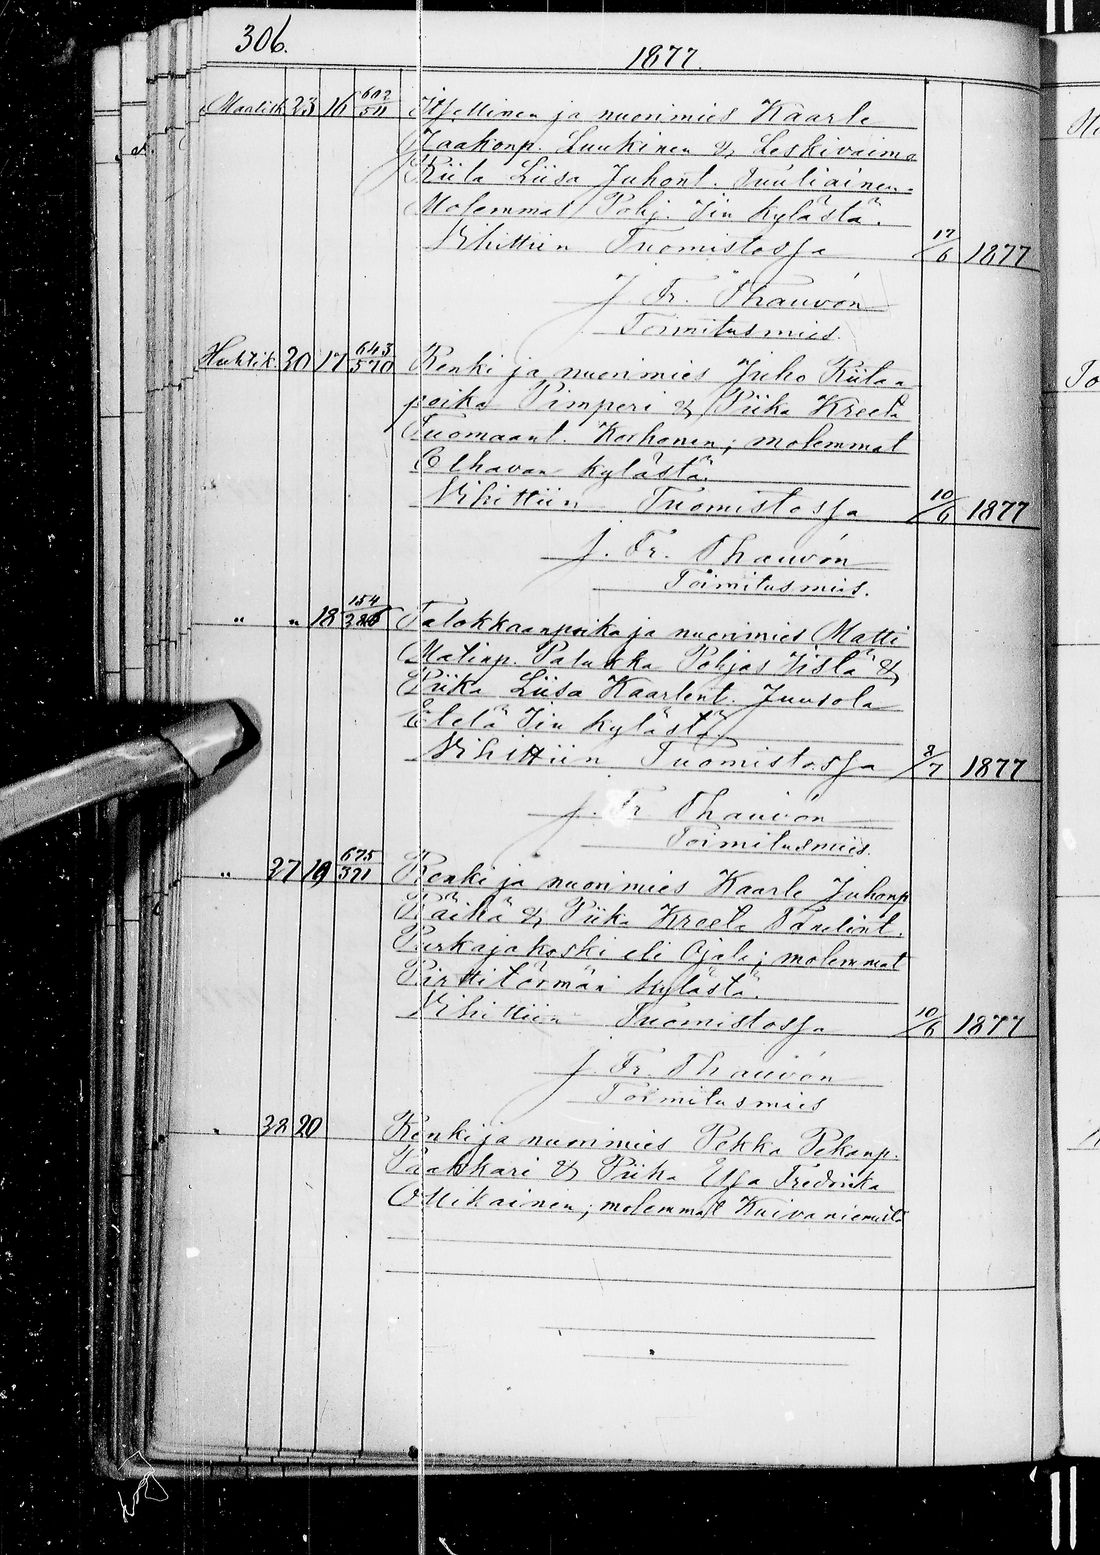 306.
1877.
Maalisk. 23 16 602/511 Itsellinen ja nuorimies Kaarle
Jaakonp. Luukinen & Leskivaimo
Riita Liisa Juhont. Tuuliainen.
Molemmat Pohj. Iin kylästä.
Vihittiin Tuomistossa 17/6 1877
J Fr. Thauvón
Toimitusmies.
Huhtik. 20 17 643/570 Renki ja nuorimies Juho Kiitan
poika Pimperi & Piika Kreeta
Tuomaant. Korhonen; molemmat
Olhavan kylästä.
Vihittiin Tuomistossa 10/6 1877
J. Fr. Thauvón
Toimitusmies.
" " 18 154 Talokkaanpoika ja nuorimies Matti
Matinp. Palukka Pohjas Iistä &
Piika Liisa Kaarlent. Juusola
Etelä Iin kylästä
Vihittiin Tuomistossa 8/7 1877
J. Fr. Thauvón
Toimitusmies.
" 27 19 675/371 Renki ja nuorimies Kaarle Juhonp
Räihä & Piika Kreeta Paulint.
Purkajakoski eli Ojala; molemmat
Pirttitörmän kylästä.
Vihittiin Tuomistossa 10/6 1877
J Fr. Thauvón
Toimitusmies
" 28 20 Renki ja nuorimies Pekka Pekanp.
Paakkari & Piika Elsa Fredrika
Ollikainen; molemmat Kuivaniemestä